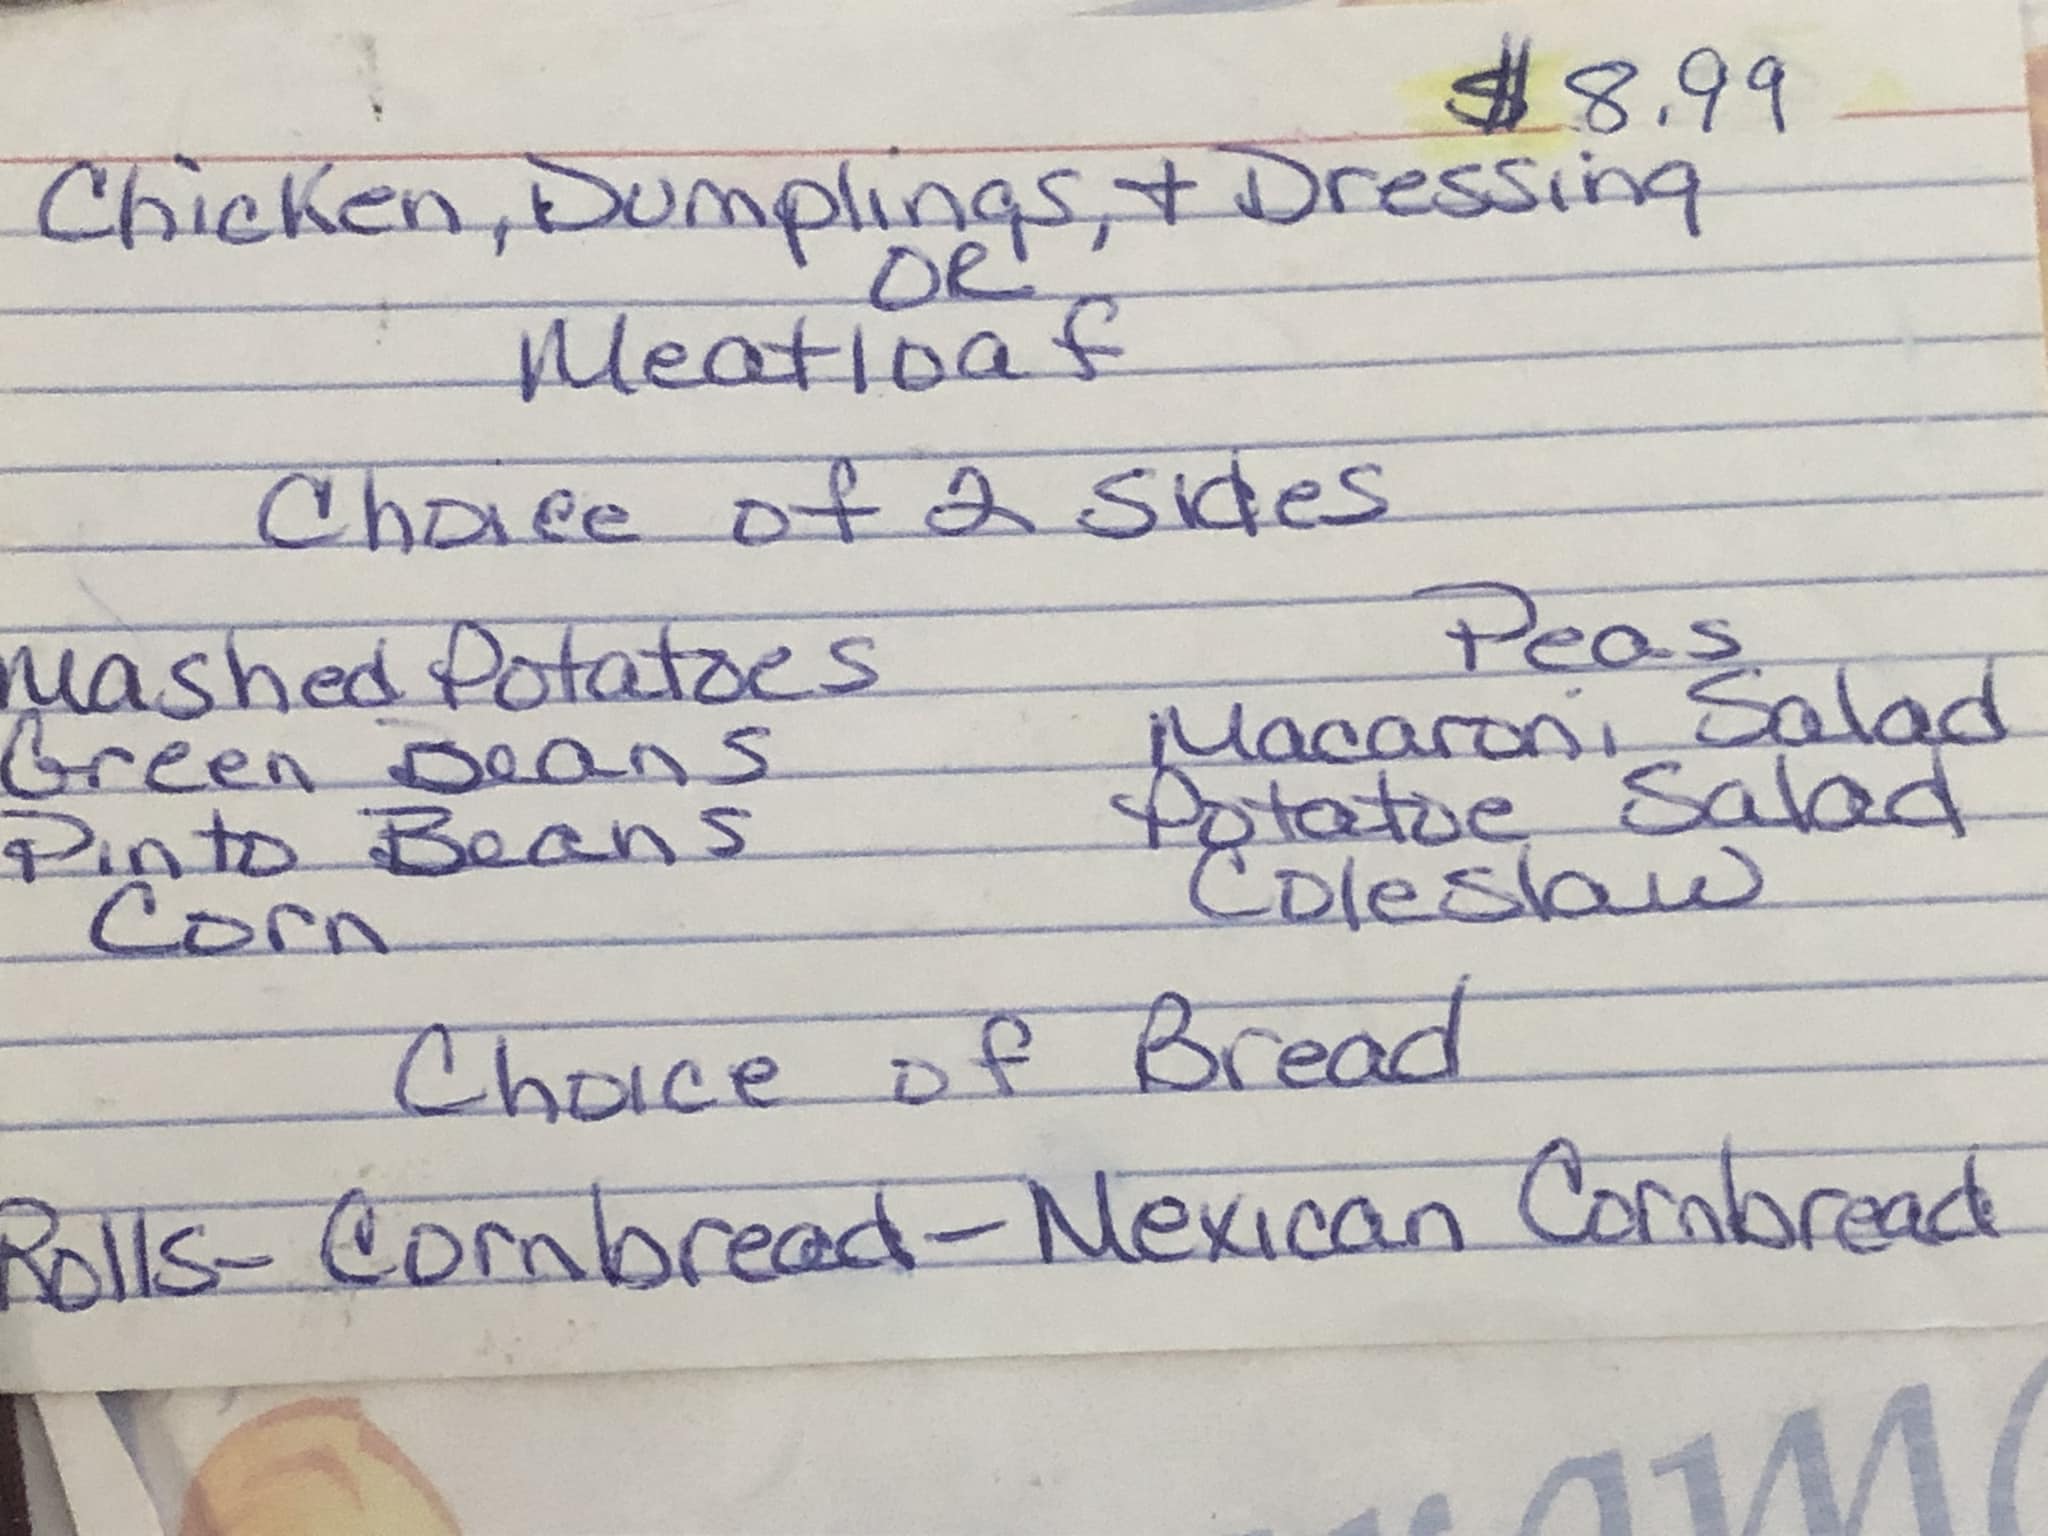 $8.99
Chicken, Dumplings, + Dressing
OR
Meatloaf
Choice of 2 sides
Mashed Potatoes
Green Beans
Pinto Beans
Corn
Peas
Macaroni Salad
Potatoe Salad
Coleslaw
Choice of Bread
Rolls- Cornbread - Mexican Cornbread